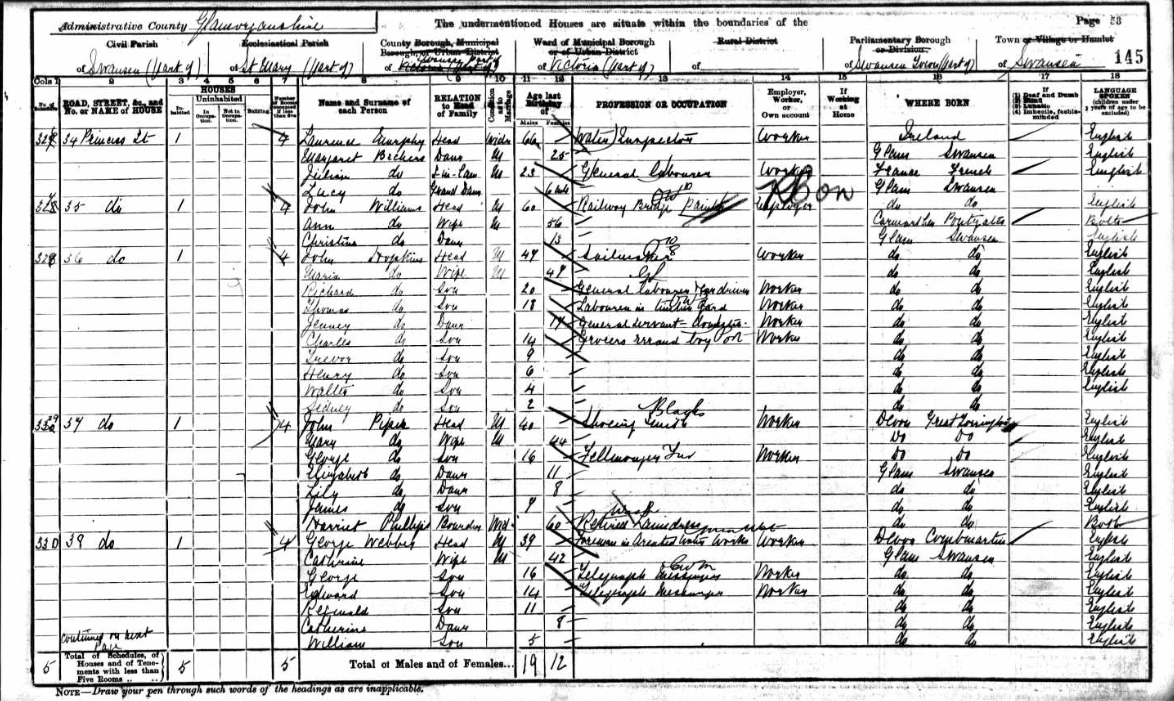 Administrative County Glamorganshire The undermentioned Houses are situate within the boundaries of the Page 58
Civil Parish Ecclesiastical Parish County Borough, Municipal Borough, or Urban District Ward of Municipal Borough or of Urban District Rural District Parliamentary Borough or Division Town or Village or Hamlet
of Swansea (part of) of St Mary (part of) of of Victoria (part of) of of Swansea Town (part of) of Swansea 145
Cols 1 2 3 4 5 6 7 8 9 10 11 12 13 14 15 16 17 18
ROAD, STREET, &c., and No. or NAME of HOUSE HOUSES Inhabited Uninhabited In Occupation Not in Occupation Building Number of Rooms occupied if less than five Name and Surname of each Person RELATION to Head of Family Condition as to Marriage Age last Birthday of Males Females PROFESSION OR OCCUPATION Employer, Worker, or Own account If Working at Home WHERE BORN (1) Deaf and Dumb (2) Blind (3) Lunatic (4) Imbecile, feeble-minded LANGUAGE SPOKEN (children under 3 years of age to be excluded)
34 Princess St 1 4 Laurence Murphy Head Widr Water Inspector Worker Ireland English
Margaret Daur M 25 Glam Swansea English
do S-in-Law M 23 General Labourer Worker France French English
Lucy do Grand Daur Glam Swansea
35 do 1 4 John Williams Head M 60 Railway Bridge Painter do do English
Ann do Wife M 56 Carmarthen Both
Christina do Daur 13 Glam Swansea English
36 do 1 4 John Hopkins Head M 47 Sailmaker Worker do do English
Maria do Wife M 47 do do English
Richard do Son 20 General Labourer Worker do do English
Thomas do Son 18 Labourer in Yard Worker do do English
Jenney do Daur 17 General Servant - domestic Worker do do English
Charles do Son 14 Grocers errand boy Worker do do English
Trevor do Son 9 do do English
Henry do Son 6 do do English
Walter do Son 4 do do English
Sedney do Son 2 do do
37 do 1 4 John Piper Head M 40 Shoeing Smith Blacks Worker Devon Great Torrington English
Mary do Wife M 44 Do Do English
George do Son 16 Fellmonger Fur Worker Do Do English
Elizabeth do Daur 11 Glam Swansea English
Lily do Daur 8 do do English
James do Son do do English
Harriet Phillips Boarder Wid 60 Retired Laundress do do Both
330 39 do 1 4 George Webber Head M 39 Foreman in Areated Water Works Worker Devon Combmartin English
Catherine Wife M 42 Glam Swansea English
George Son 16 Telegraph Messenger Worker do do English
Edward Son 14 Telegraph Messenger Worker do do English
Reginald Son 11 do do English
Catherine Daur 8 do do English
William Son 5 do do English
continued on next Page
5 Total of Schedules, of Houses and of Tenements with less than Five Rooms 5 5 Total of Males and of Females... 19 12
NOTE—Draw your pen through such words of the headings as are inapplicable.